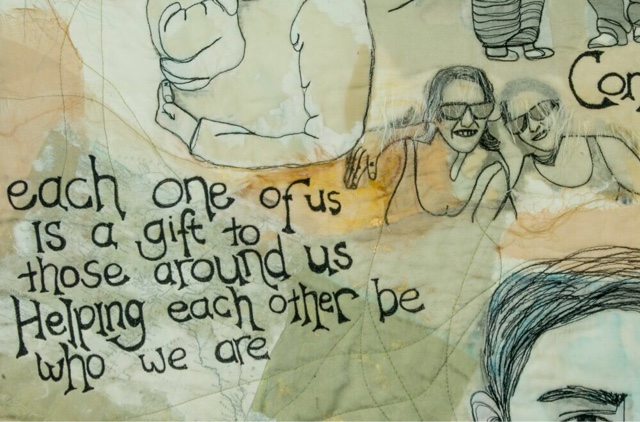 Con
each one of us
Is a gift to
those around us
Helping each other be
who we are